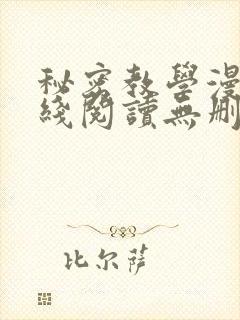 秘密教學漫
綫閱讀無刪
比尔萨